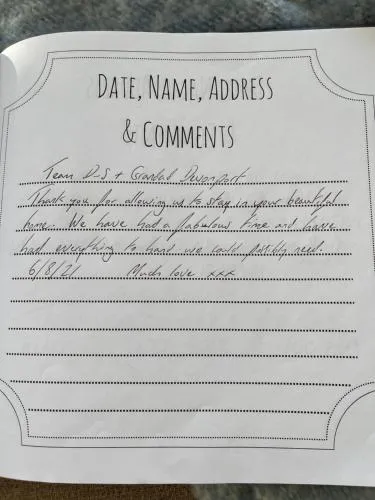 DATE, NAME, ADDRESS
& COMMENTS
Team D-S + Grandad Devonport
Thank you for allowing us to stay in your beautiful
home. We have had a fabulous time and have
had everything to hand we could possibly need.
6/8/21 Much love xxx